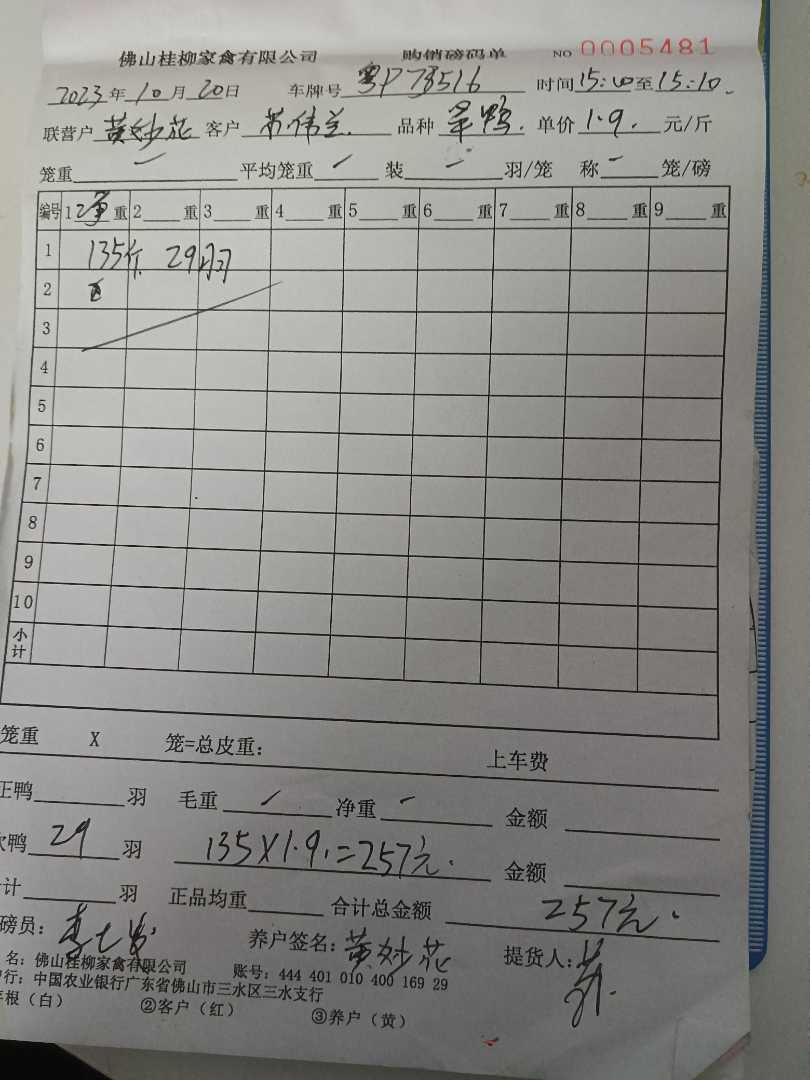 佛山桂柳家禽有限公司 购销磅码单 NO 0005481
2023年10月20日 车牌号 粤P78516 时间15:00至15:10
联营户 黄妙花 客户 苏伟兰 品种 鸭 单价 1.9 元/斤
笼重 一 平均笼重 一 装 一 羽/笼 称 一 笼/磅
编号 1 净 重 2 重 3 重 4 重 5 重 6 重 7 重 8 重 9 重
1 135斤 29羽
2
3
4
5
6
7
8
9
10
小计
笼重 X 笼=总皮重: 上车费
正鸭 羽 毛重 一 净重 一 金额
次鸭 29 羽 135X1.9=257元. 金额
计 羽 正品均重 合计总金额 257元.
磅员: 养户签名: 黄妙花 提货人:
名: 佛山桂柳家禽有限公司 账号: 444 401 010 400 169 29
行: 中国农业银行广东省佛山市三水区三水支行
根(白) ②客户(红) ③养户(黄)